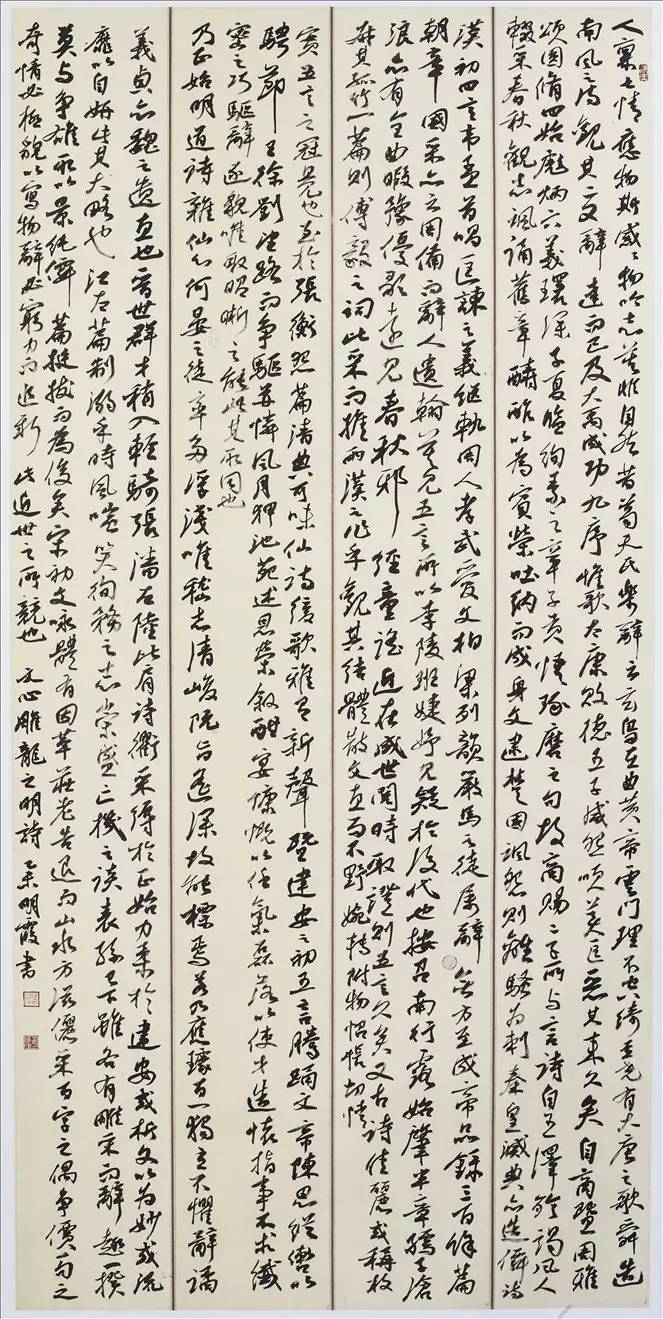 人稟七情應物斯感〻物吟志莫非自然昔葛天氏樂辭云玄鳥在曲黃帝雲門理不空綺至堯有大唐之歌舜造
南風之詩觀其二文辭達而已及大禹成功九序惟歌太康敗德五子咸怨順美匡惡其來久矣自商暨周雅
頌圓備四始彪炳六義環深子夏監絢素之章子貢悟琢磨之句故商賜二子所与言詩自王澤殄竭風人
輟采春秋觀志諷誦舊章酬酢以為賓榮吐納而成身文逮楚國諷怨則離騷為刺秦皇滅典亦造僊詩
漢初四言韋孟首唱匡諫之義继軌周人孝武愛文柏梁列韻嚴馬之徒属辭無方至成帝品錄三百餘篇
朝章國采亦云周備而辭人遺翰莫見五言所以李陵班婕妤見疑於後代也按召南行露始肇半章孺子滄
浪亦有全曲暇豫優歌遠見春秋邪徑童謠近在成世閱時取證則五言久矣又古詩佳麗或稱枚
叔其孤竹一篇則傅毅之詞比采而推兩漢之作乎觀其結體散文直而不野婉轉附物怊悵切情
實五言之冠冕也至於張衡怨篇清典可味仙詩緩歌雅有新聲暨建安之初五言騰踊文帝陳思縱轡以
騁節王徐劉望路而争驅并憐風月狎池苑述恩榮敘酣宴慷慨以任氣磊落以使才造懷指事不求纖
密之巧驅辭逐貌唯取昭晰之能此其所同也
乃正始明道詩雜仙心何晏之徒率多浮淺唯嵇志清峻阮旨遙深故能標焉若乃應璩百一獨立不懼辭譎
義貞亦魏之遺直也晉世群才稍入輕騎張潘左陸比肩詩衢采縟於正始力柔於建安或析文以為妙或流
靡以自妍此其大略也江左篇制溺乎時風嗤笑徇務之志崇盛亡機之談袁孫已下雖各有雕采而辭趣一揆
莫与争雄所以景純僊篇挺拔而為俊矣宋初文咏體有因革莊老告退而山水方滋儷采百字之偶争價一句之
奇情必極貌以寫物辭必窮力而追新此近世之所競也 文心雕龍之明詩 乙未明霞書